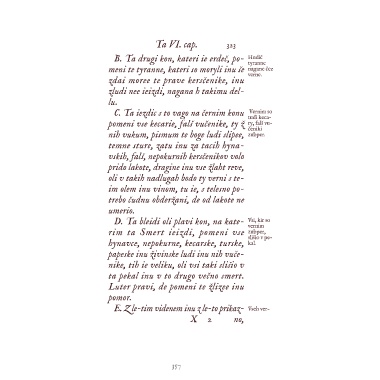 Ta VI. cap. 323
B. Ta drugi kon, kateri ie erdeč, po-
meni te tyranne, kateri so moryli inu še
zdai moree te prave kersčenike, inu
zludi nee ieizdi, nagana h takimu del-
lu.
Hudič
tyranne
nagane čez
verne.
C. Ta iezdic s to vago na černim konu
pomeni vse kecarie, falš vučenike, ty ž
nih vukum, pismum te boge ludi slipee,
temne sture, zatu inu za tacih hyna-
vskih, falš, nepokurnih kersčenikov volo
prido lakote, dragine inu vse žlaht reve,
oli v takih nadlugah bodo ty verni s te-
im olem inu vinom, tu ie, s telesno po-
trebo čudnu obderžani, de od lakote ne
umerio.
Vernim so
tudi keca-
ry, falš vu-
čeniki
zdiper.
D. Ta bleidi oli plavi kon, na kate-
rim ta Smert ieizdi, pomeni vse
hynavce, nepokurne, kecarske, turske,
papeske inu živinske ludi inu nih vuče-
nike, tih ie veliku, oli vsi taki slišio v
ta pekal inu v to drugo večno smert.
Luter pravi, de pomeni te žlizee inu
pomor.
Vsi, kir so
vernim
zdiper,
slišio v pe-
kal.
E. Z le-tim videnem inu z le-to prikaz-
Vseh ver-
X 2 no,
357